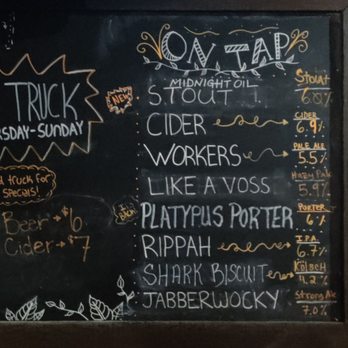 TRUCK
RSDAY-SUNDAY
d truck for
SPECIALS!
Beer → $6
Cider → $7
NEW
I'M
BACK!
ON TAP
MIDNIGHT OIL
STOUT
CIDER
WORKERS
LIKE A VOSS
PLATYPUS PORTER
RIPPAH
SHARK BISCUIT
JABBERWOCKY
Stout
CIDER
6.9%
PALE ALE
5.5%
Hazy Pale
5.9%
PORTER
6%
IPA
6.7%
KÖLSCH
4.2%
Strong Ale
7.0%